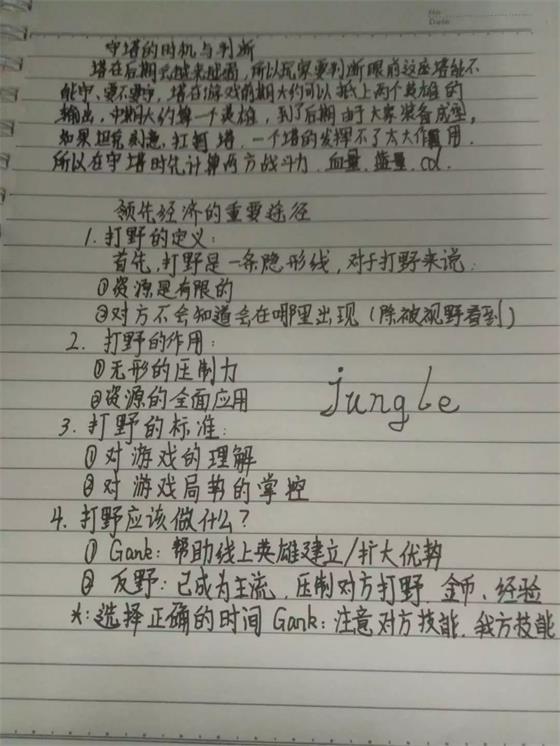 No.
Date
守塔的时机与判断
塔在后期会越来越弱,所以玩家要判断眼前这座塔能不
能守、要不要守,塔在游戏前期大约可以抵上两个英雄的
输出,中期大约算一个英雄,到了后期由于大家装备成型,
如果坦克刻意打掉塔,一个塔的发挥不了太大作用.
所以在守塔时先计算两方战斗力.血量.蓝量.cd.
领先经济的重要途径
1.打野的定义:
首先,打野是一条隐形线,对于打野来说:
①资源是有限的
②对方不会知道会在哪里出现(除被视野看到)
2.打野的作用:
①无形的压制力
②资源的全面应用
jungle
3.打野的标准:
①对游戏的理解
②对游戏局势的掌控
4.打野应该做什么?
①Gank:帮助线上英雄建立/扩大优势
②反野:已成为主流.压制对方打野 金币、经验
*:选择正确的时间Gank:注意对方技能.我方技能